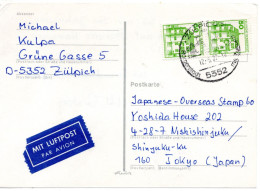 Michael
Kulpa
Grüne Gasse 5
D-5352 Zülpich
Postkarte
Japanese-Overseas Stamp Co
Yoshida House 202
4-28-7 Nishishinjuku/
Shinjuku-ku
160 Tokyo (Japan)
MIT LUFTPOST
PAR AVION
5352